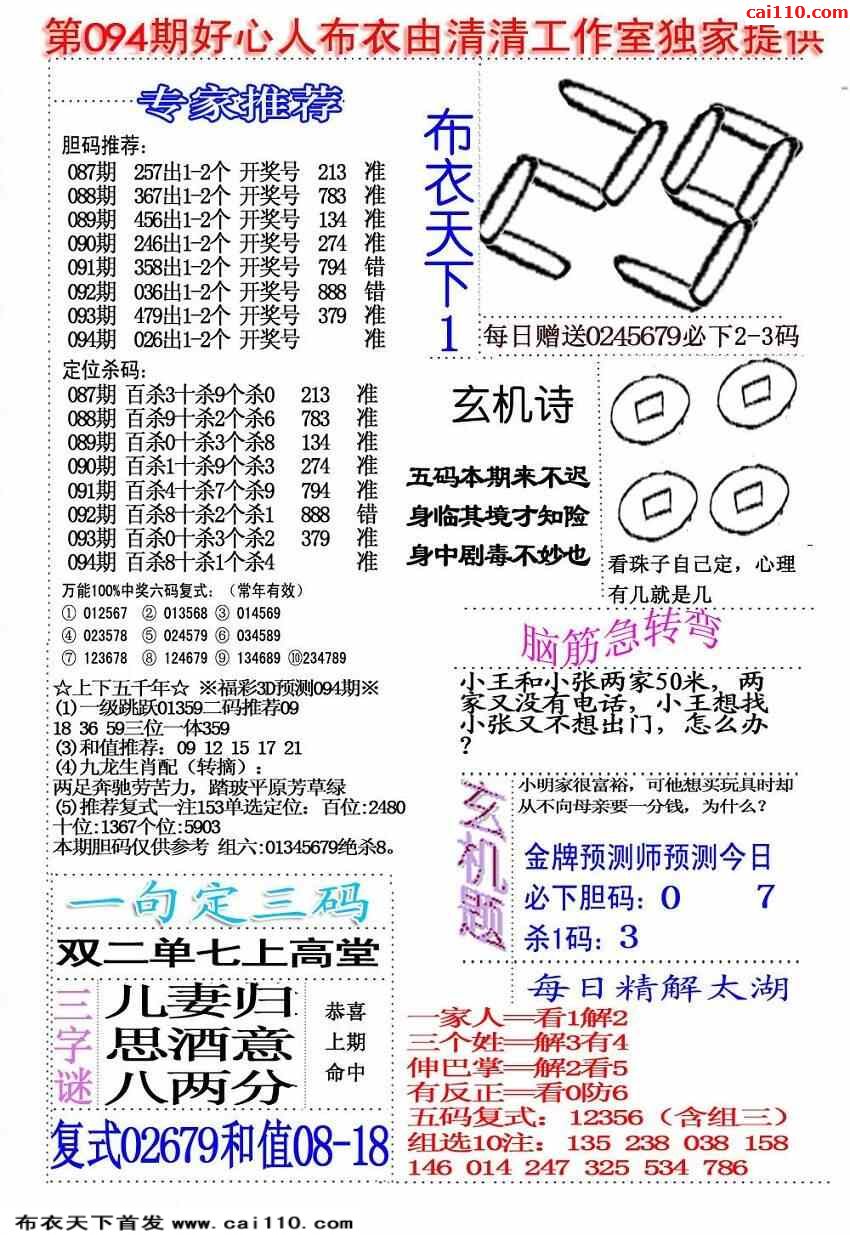 cai110.com
第094期好心人布衣由清清工作室独家提供
专家推荐
胆码推荐:
087期 257出1-2个 开奖号 213 准
088期 367出1-2个 开奖号 783 准
089期 456出1-2个 开奖号 134 准
090期 246出1-2个 开奖号 274 准
091期 358出1-2个 开奖号 794 错
092期 036出1-2个 开奖号 888 错
093期 479出1-2个 开奖号 379 准
094期 026出1-2个 开奖号 准
定位杀码:
087期 百杀3十杀9个杀0 213 准
088期 百杀9十杀2个杀6 783 准
089期 百杀0十杀3个杀8 134 准
090期 百杀1十杀9个杀3 274 准
091期 百杀4十杀7个杀9 794 准
092期 百杀8十杀2个杀1 888 错
093期 百杀0十杀3个杀2 379 准
094期 百杀8十杀1个杀4 准
万能100%中奖六码复式:(常年有效)
① 012567 ② 013568 ③ 014569
④ 023578 ⑤ 024579 ⑥ 034589
⑦ 123678 ⑧ 124679 ⑨ 134689 ⑩234789
☆上下五千年☆ ※福彩3D预测094期※
(1)一级跳跃01359二码推荐09
18 36 59三位一体359
(3)和值推荐: 09 12 15 17 21
(4)九龙生肖配(转摘):
两足奔驰劳苦力, 踏玻平原芳草绿
(5)推荐复式一注153单选定位: 百位:2480
十位:1367个位:5903
本期胆码仅供参考 组六:01345679绝杀8。
一句定三码
双二单七上高堂
三字谜
儿妻归
思酒意
八两分
恭喜
上期
命中
复式02679和值08-18
布衣天下1
29
每日赠送0245679必下2-3码
玄机诗
五码本期来不迟
身临其境才知险
身中剧毒不妙也
看珠子自己定, 心理
有几就是几
脑筋急转弯
小王和小张两家50米, 两
家又没有电话, 小王想找
小张又不想出门, 怎么办
?
玄机题
小明家很富裕, 可他想买玩具时却
从不向母亲要一分钱, 为什么?
金牌预测师预测今日
必下胆码: 0 7
杀1码: 3
每日精解太湖
一家人==看1解2
三个姓==解3有4
伸巴掌==解2看5
有反正==看0防6
五码复式: 12356 (含组三)
组选10注: 135 238 038 158
146 014 247 325 534 786
布衣天下首发 www.cai110.com